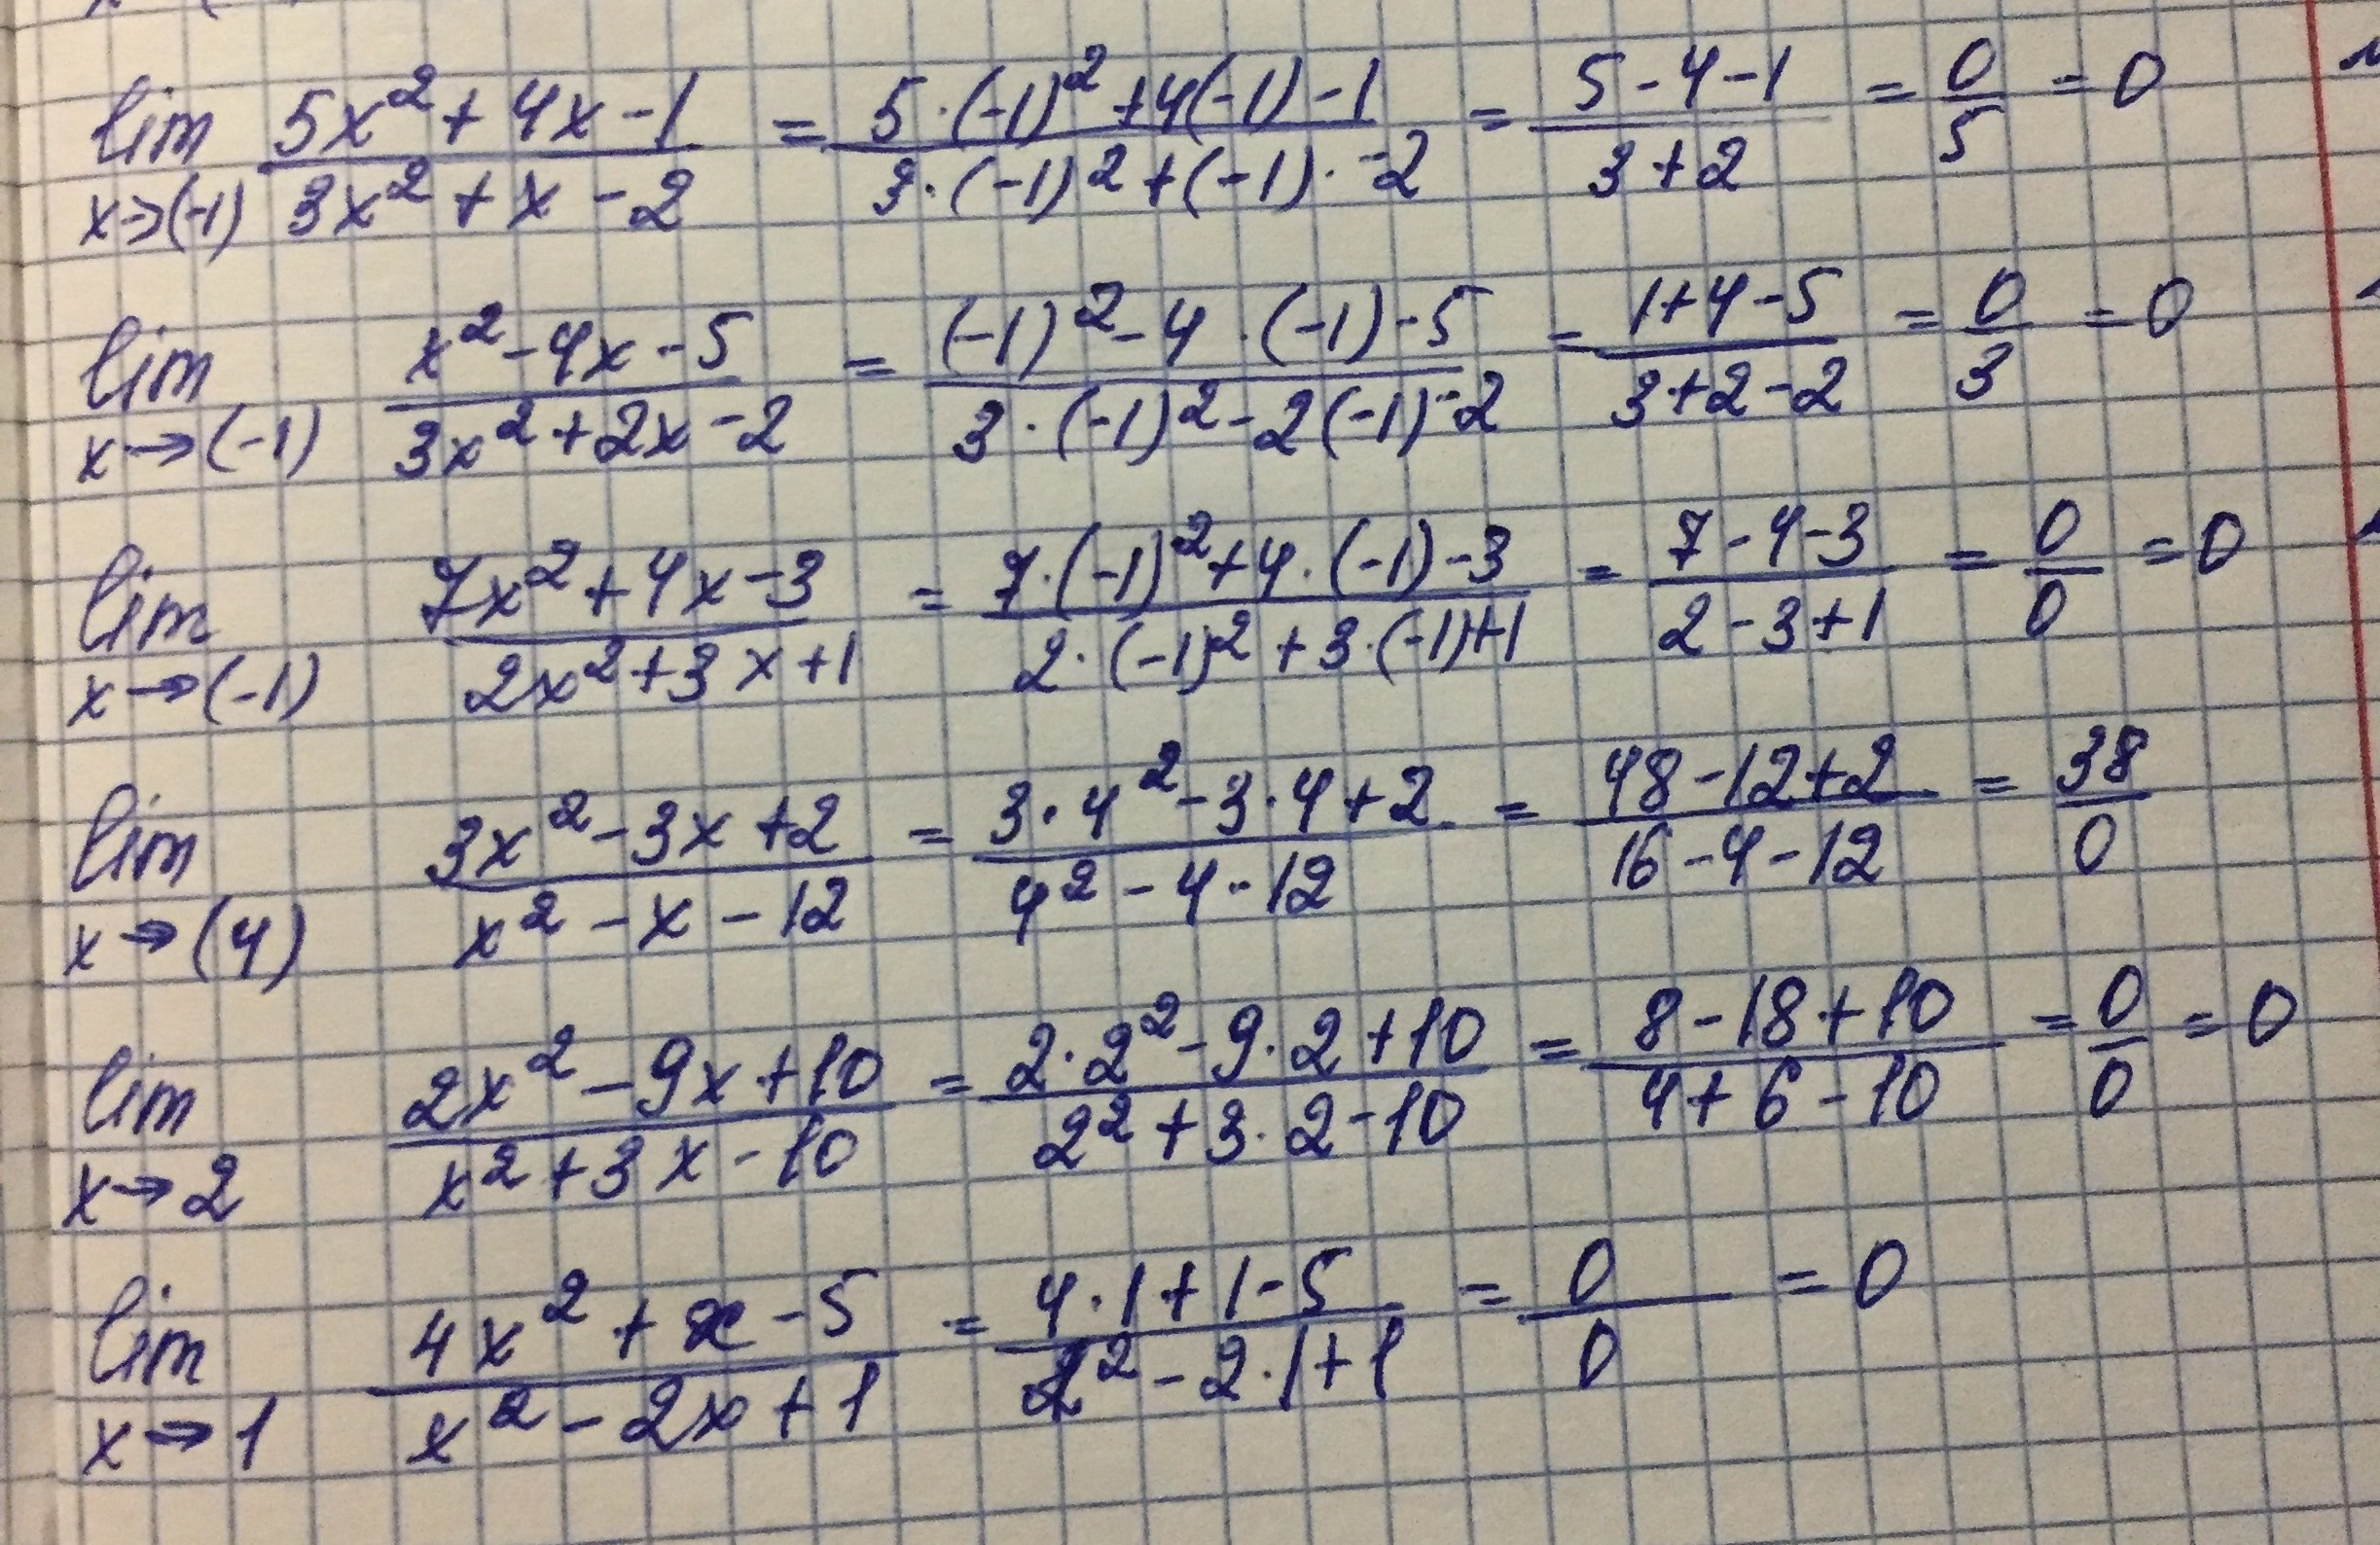 lim x→(-1) (5x² + 4x - 1)/(3x² + x - 2) = (5·(-1)² + 4(-1) - 1)/(3·(-1)² + (-1)· -2) = (5 - 4 - 1)/(3 + 2) = 0/5 = 0
lim x→(-1) (x² - 4x - 5)/(3x² + 2x - 2) = ((-1)² - 4·(-1) - 5)/(3·(-1)² - 2(-1) - 2) = (1 + 4 - 5)/(3 + 2 - 2) = 0/3 = 0
lim x→(-1) (7x² + 4x - 3)/(2x² + 3x + 1) = (7·(-1)² + 4·(-1) - 3)/(2·(-1)² + 3·(-1) + 1) = (7 - 4 - 3)/(2 - 3 + 1) = 0/0 = 0
lim x→(4) (3x² - 3x + 2)/(x² - x - 12) = (3·4² - 3·4 + 2)/(4² - 4 - 12) = (48 - 12 + 2)/(16 - 4 - 12) = 38/0
lim x→2 (2x² - 9x + 10)/(x² + 3x - 10) = (2·2² - 9·2 + 10)/(2² + 3·2 - 10) = (8 - 18 + 10)/(4 + 6 - 10) = 0/0 = 0
lim x→1 (4x² + x - 5)/(x² - 2x + 1) = (4·1 + 1 - 5)/(1² - 2·1 + 1) = 0/0 = 0